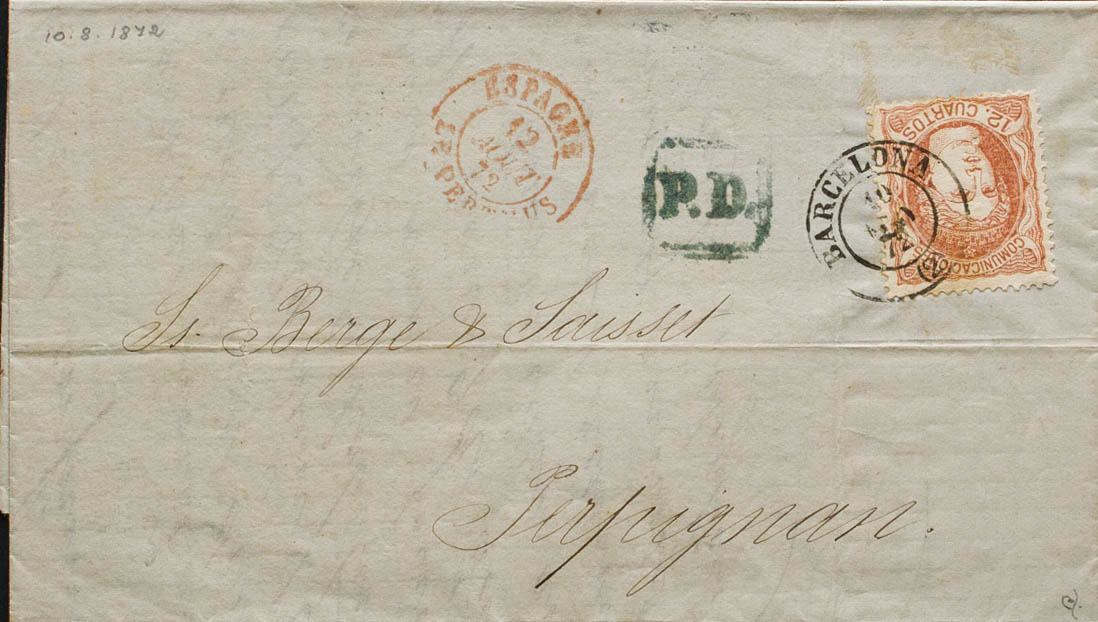 10.8.1872
ESPAGNE
12
AOUT
72
LE PERTHUS
P.D.
12. CUARTOS
COMUNICACIONES
BARCELONA
10
72
Ss. Berge & Saisset
Perpignan.